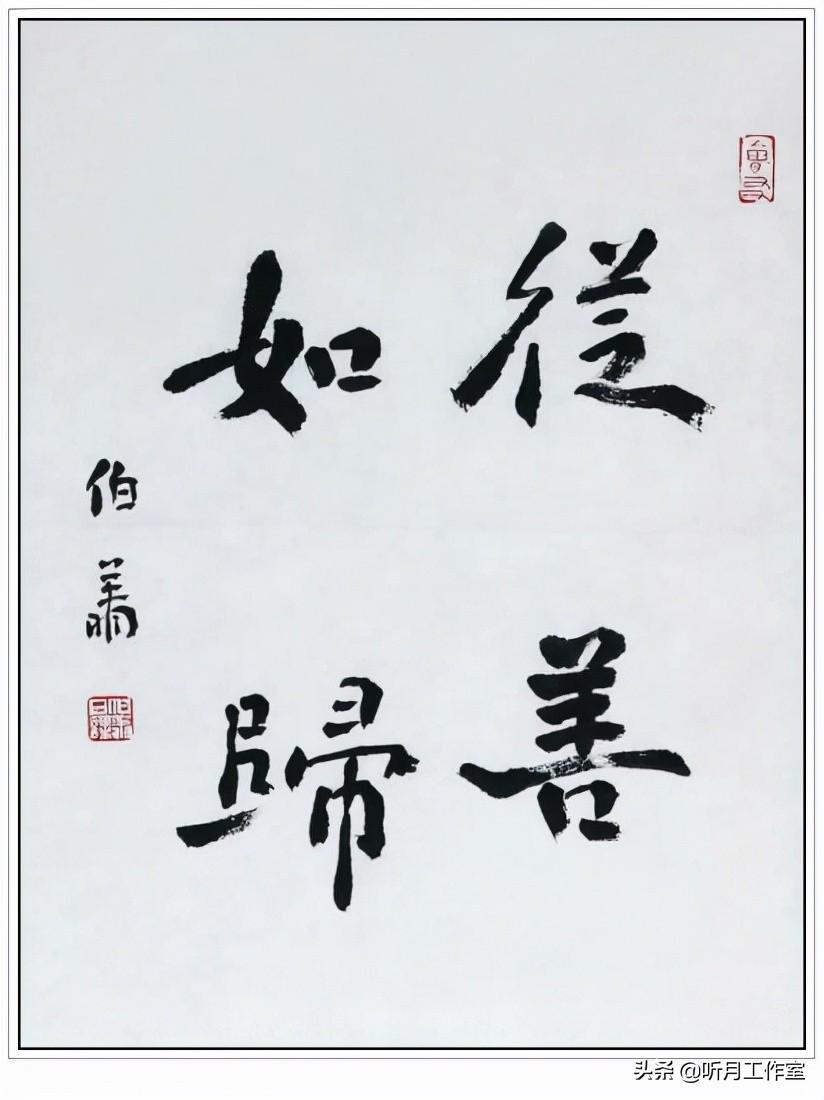 從善
如歸
伯
头条 @听月工作室